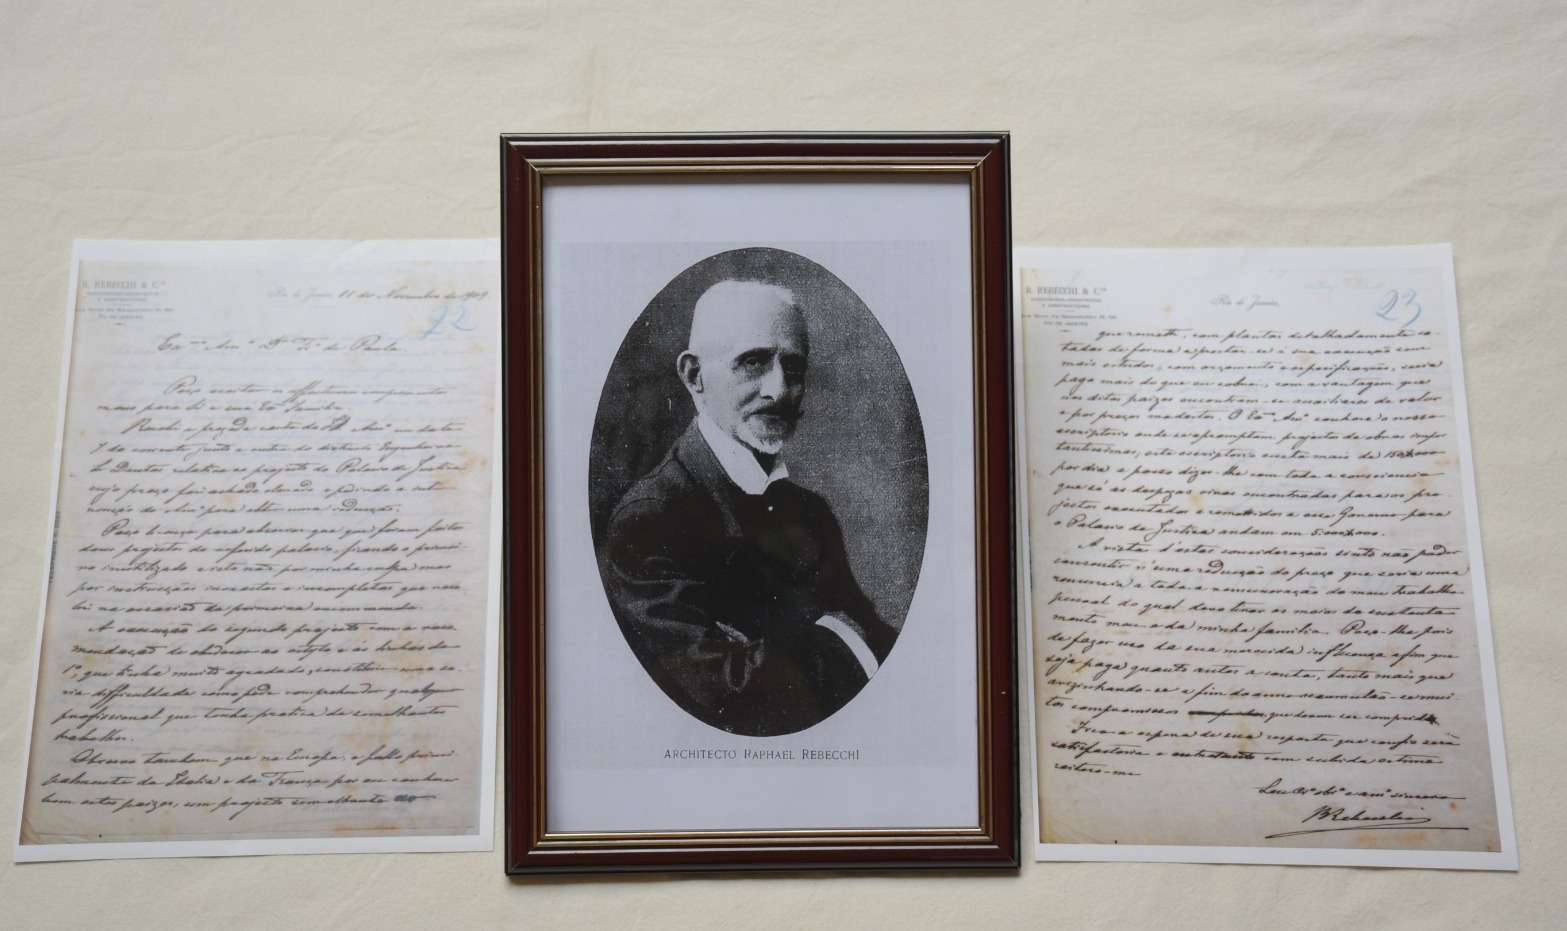 R. REBECCHI & C.ia
ENGENHEIROS-ARCHITECTOS
E CONSTRUCTORES
Rio de Janeiro, 11 de Novembro de 1909
RIO DE JANEIRO
22
Ex.mo Am.o Dr. F.co de Paula.
Peço aceitar os affectuosos comprimentos
meus para Si e sua Ex. Familia.
Recebi a prezada carta do Ill. Am.o em data
7 do corrente junto a outra do distincto Engenhei-
ro Director relativa ao projecto do Palacio da Justiça
cujo preço foi achado elevado e pedindo a inter-
venção do Am.o para obter uma reducção.
Peço licença para observar que já foram feitos
dous projectos do referido palacio, ficando o primei-
ro inutilizado e isto não por minha culpa mas
por instrucções inexactas e incompletas que rece-
bi na occasião da primeira encommenda.
A execução do segundo projecto com a reco-
mendação de obedecer ao estylo e ás linhas do
1º, que tinha muito agradado, constituiu uma se-
ria difficuldade como póde comprehender qualquer
profissional que tenha pratica de semelhantes
trabalhos.
Observo tambem que na Europa, e fallo princi-
palmente da Italia e da França por eu conhecer
bem estes paizes, um projecto semelhante ao
ARCHITECTO RAPHAEL REBECCHI
R. REBECCHI & C.ia
ENGENHEIROS-ARCHITECTOS
E CONSTRUCTORES
RIO DE JANEIRO
Rio de Janeiro,
23
que remetti, com plantas detalhadamente co-
tadas de forma a prestar-se á sua execução sem
mais estudos, com orçamento e especificação, seria
pago mais do que eu cobrei, com a vantagem que
nos ditos paizes encontram-se auxiliares de valor
e por preços modestos. O Ex.mo Am.o conhece o nosso
escriptorio onde se apromptam projectos de obras impor
tantissimas, este escriptorio custa mais de 150$000
por dia e posso dizer-lhe com toda a consciencia
que só as despezas vivas encontradas para os pro-
jectos executados e remettidos a esse Governo para
o Palacio da Justiça andam em 5:000$000.
A vista d'estas considerações sinto não poder
consentir n'uma reducção do preço que seria uma
renuncia a toda a remuneração do meu trabalho
pessoal do qual devo tirar os meios de sustenta-
mento meu e da minha familia. Peço-lhe pois
de fazer uso da sua merecida influencia afim que
seja paga quanto antes a conta, tanto mais que
avizinhando-se o fim do anno accumulão-se mui-
tos compromissos que devem ser compridos.
Fico a espera de sua resposta que confio será
satisfactoria e entretanto com subida estima
reitero-me
Seu Cr.o obr.o e am.o sincero
R Rebecchi